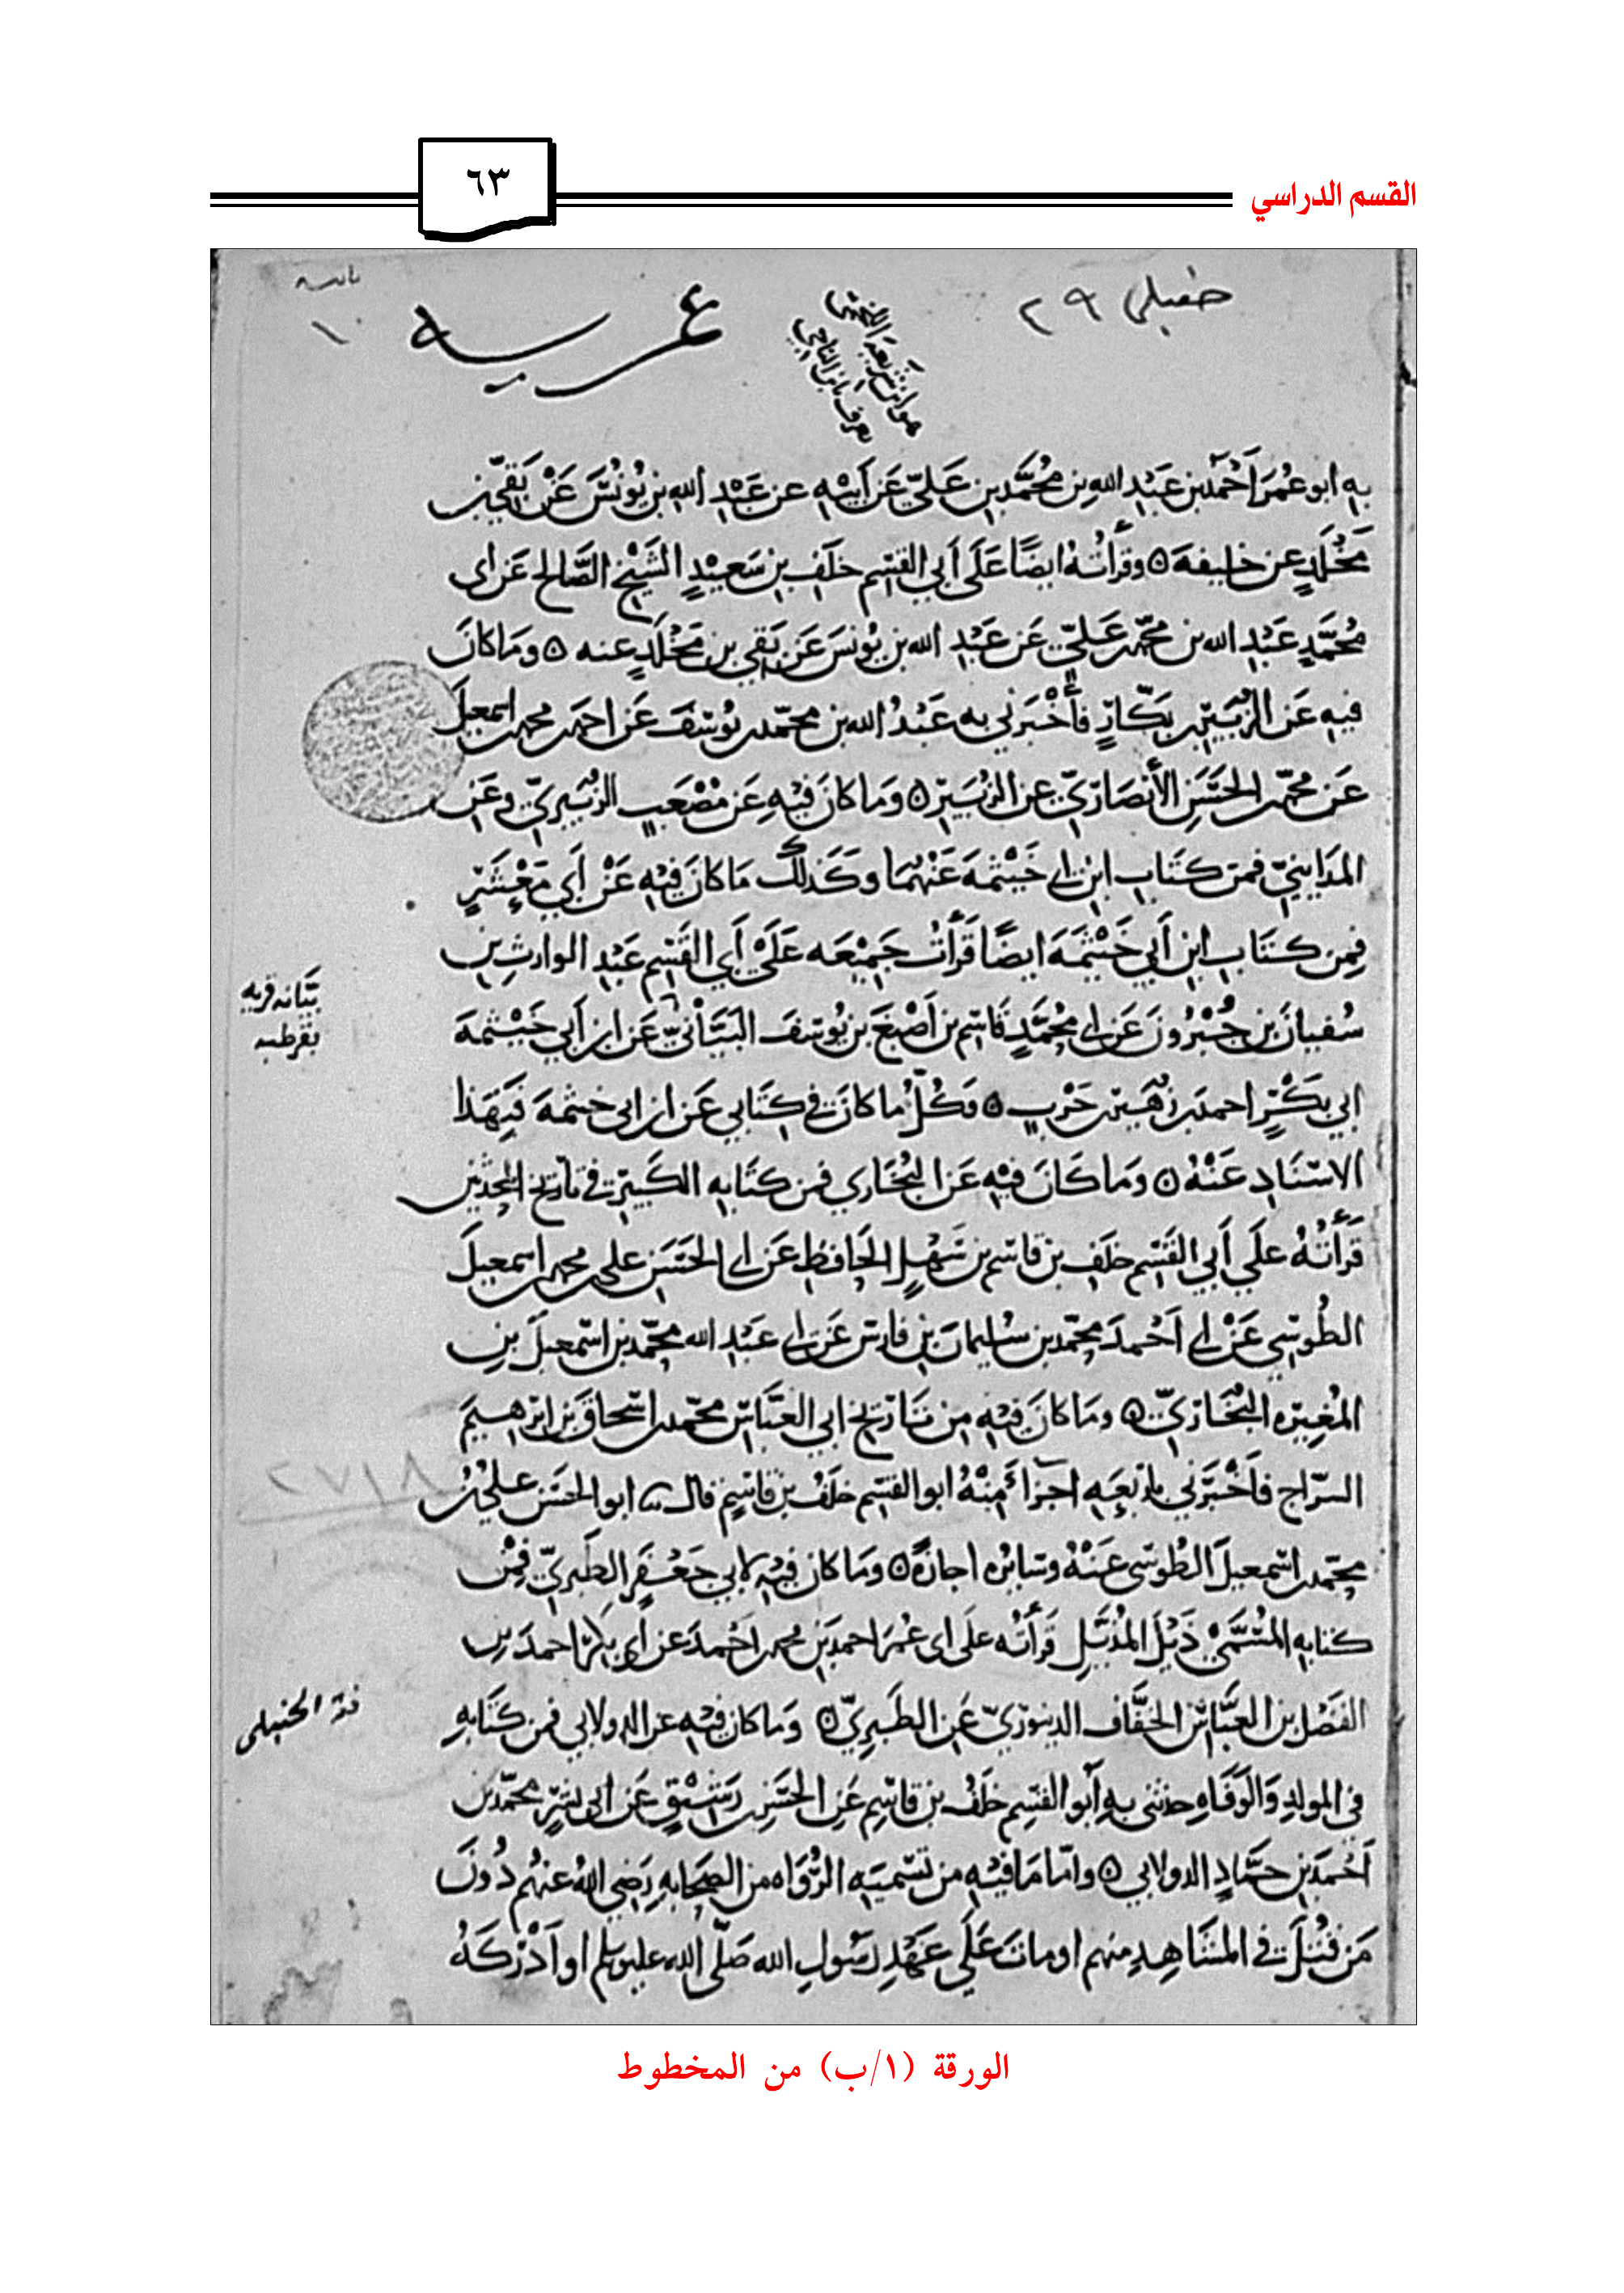 القسم الدراسي
٦٣
حنبلي ٢٩
عربيه
هو ابن شريعة اللخمي
يعرف بابن الباجي
به ابو عُمَرَ اَحْمَد بن عَبْدِ اللهِ بن مُحَمَّدِ بنِ عَليّ عَن اَبيْهِ عن عَبْدِ اللهِ بن يُونُسَ عَنْ بَقيّ بن
مَخْلَدٍ عن خليفه ٥ وقرأتُهُ ايضًا عَلَى أَبي القسم خلَف بن سَعيْدٍ الشَيْخ الصَّالح عَن ابى
مُحَمَّدٍ عَبْدِ الله بن محمّد بن عَليّ عَن عَبْدِ الله بن يُونسَ عَن بَقي بن مَخْلَدٍ عنه ٥ ومَا كانَ
فيه عَن الزُبَيْر بن بَكّارٍ فأخْبَرني به عَبْدُ الله بن محمّد بن يُوسُفَ عَن احمد بن محمد بن اسمعيلَ
عَن محمّد بن الحَسَنِ الأَنصَاريّ عن الزُبَيْر ٥ وَمَا كانَ فيْهِ عَن مُصْعَبٍ الزُبَيريّ وعَن
المَدَاينيّ فمن كتَاب ابن ابي خَيْثمَةَ عَنْهُمَا وكَذلكَ مَا كانَ فيْهِ عَنْ أَبي مَعْشَرٍ
فِمن كتَابِ ابن أَبي خَيْثَمَةَ ايضًا قَرَأتُ جَمِيْعَه عَلَى أَبي القَسم عَبْدِ الوارثِ بن
سُفيانَ بن جُبْرُونَ عَن ابي مُحمَّدٍ قاسم بن اَصْبَغَ بن يُوسُفَ البَيَّانيّ عَن ابن أَبي خَيْثمَةَ
ابي بَكْرٍ احمد بن زُهَيْر بن حَرْبٍ ٥ وَكُلُّ ما كانَ في كِتَابي عَن ابن ابي خيثمةَ فَبِهَذا
الاسْنَادِ عَنْهُ ٥ ومَا كَانَ فيْهِ عَن البُخَاري فمن كتَابِه الكَبيْر في تاريخ المحدثين
قَرَأتُهُ علَى أَبي القَسم خلَف بن قاسم بن سَهْلٍ الحَافظِ عَن ابي الحَسَن علي بن محمد بن اسمعيلَ
الطُوسي عَنْ ابي اَحْمدَ محمّد بن سُليمانَ بن فارس عَن ابي عَبْدِ الله محمّد بن اسمعيلَ بن
المُغِيْره البُخَاريّ ٥ ومَا كانَ فيْهِ مِن تَاريْخ ابي العَبَّاس محمّد بن اسْحاقَ بن ابْرهيمَ
السرّاج فأَخْبَرَني باربَعةِ اجزَاءٍ مِنْهُ ابو القسم خلَفُ بن قاسمٍ قالَ ثنا ابو الحَسَن عليُّ بن
محمّد بن اسمعيلَ الطُوسي عَنْهُ وسَايره اجازةً ٥ ومَا كانَ فيْهِ لابي جَعْفَر الطبريّ فمِن
كتابه المُسَمَّى ذَيْل المُذَيّلِ قَرَأتُه علَى ابى عُمَرَ احمدَ بن محمد بن احمدَ عن أبي بكر احمدَ بن
الفَضْل بن العَبَّاس الخَفَّاف الدينوَريّ عَن الطَبَريّ ٥ وَمَا كانَ فيْهِ عن الدولابي فمن كتَابِه
في المولدِ وَالوَفَاهِ حدثني بهِ أَبو القسم خلَفُ بن قاسِم عَن الحَسَن بن رَشيْقٍ عَن ابي بشرٍ محمّد بن
اَحْمدَ بن حمَّادٍ الدولابي ٥ وامّا مَا فيْهِ من تَسميَةِ الرُّوَاه من الصحَابهِ رَضي اللهُ عنهُم دُونَ
مَن قُتِلَ في المشَاهِدِ منهم او ماتَ عَلَى عَهْدِ رَسُولِ الله صَلّى الله عليه وسلم او اَدْرَكَهُ
بَيَّانه قريه
بقرطبه
الحنبلى
٨١٧٢
الورقة (١/ب) من المخطوط